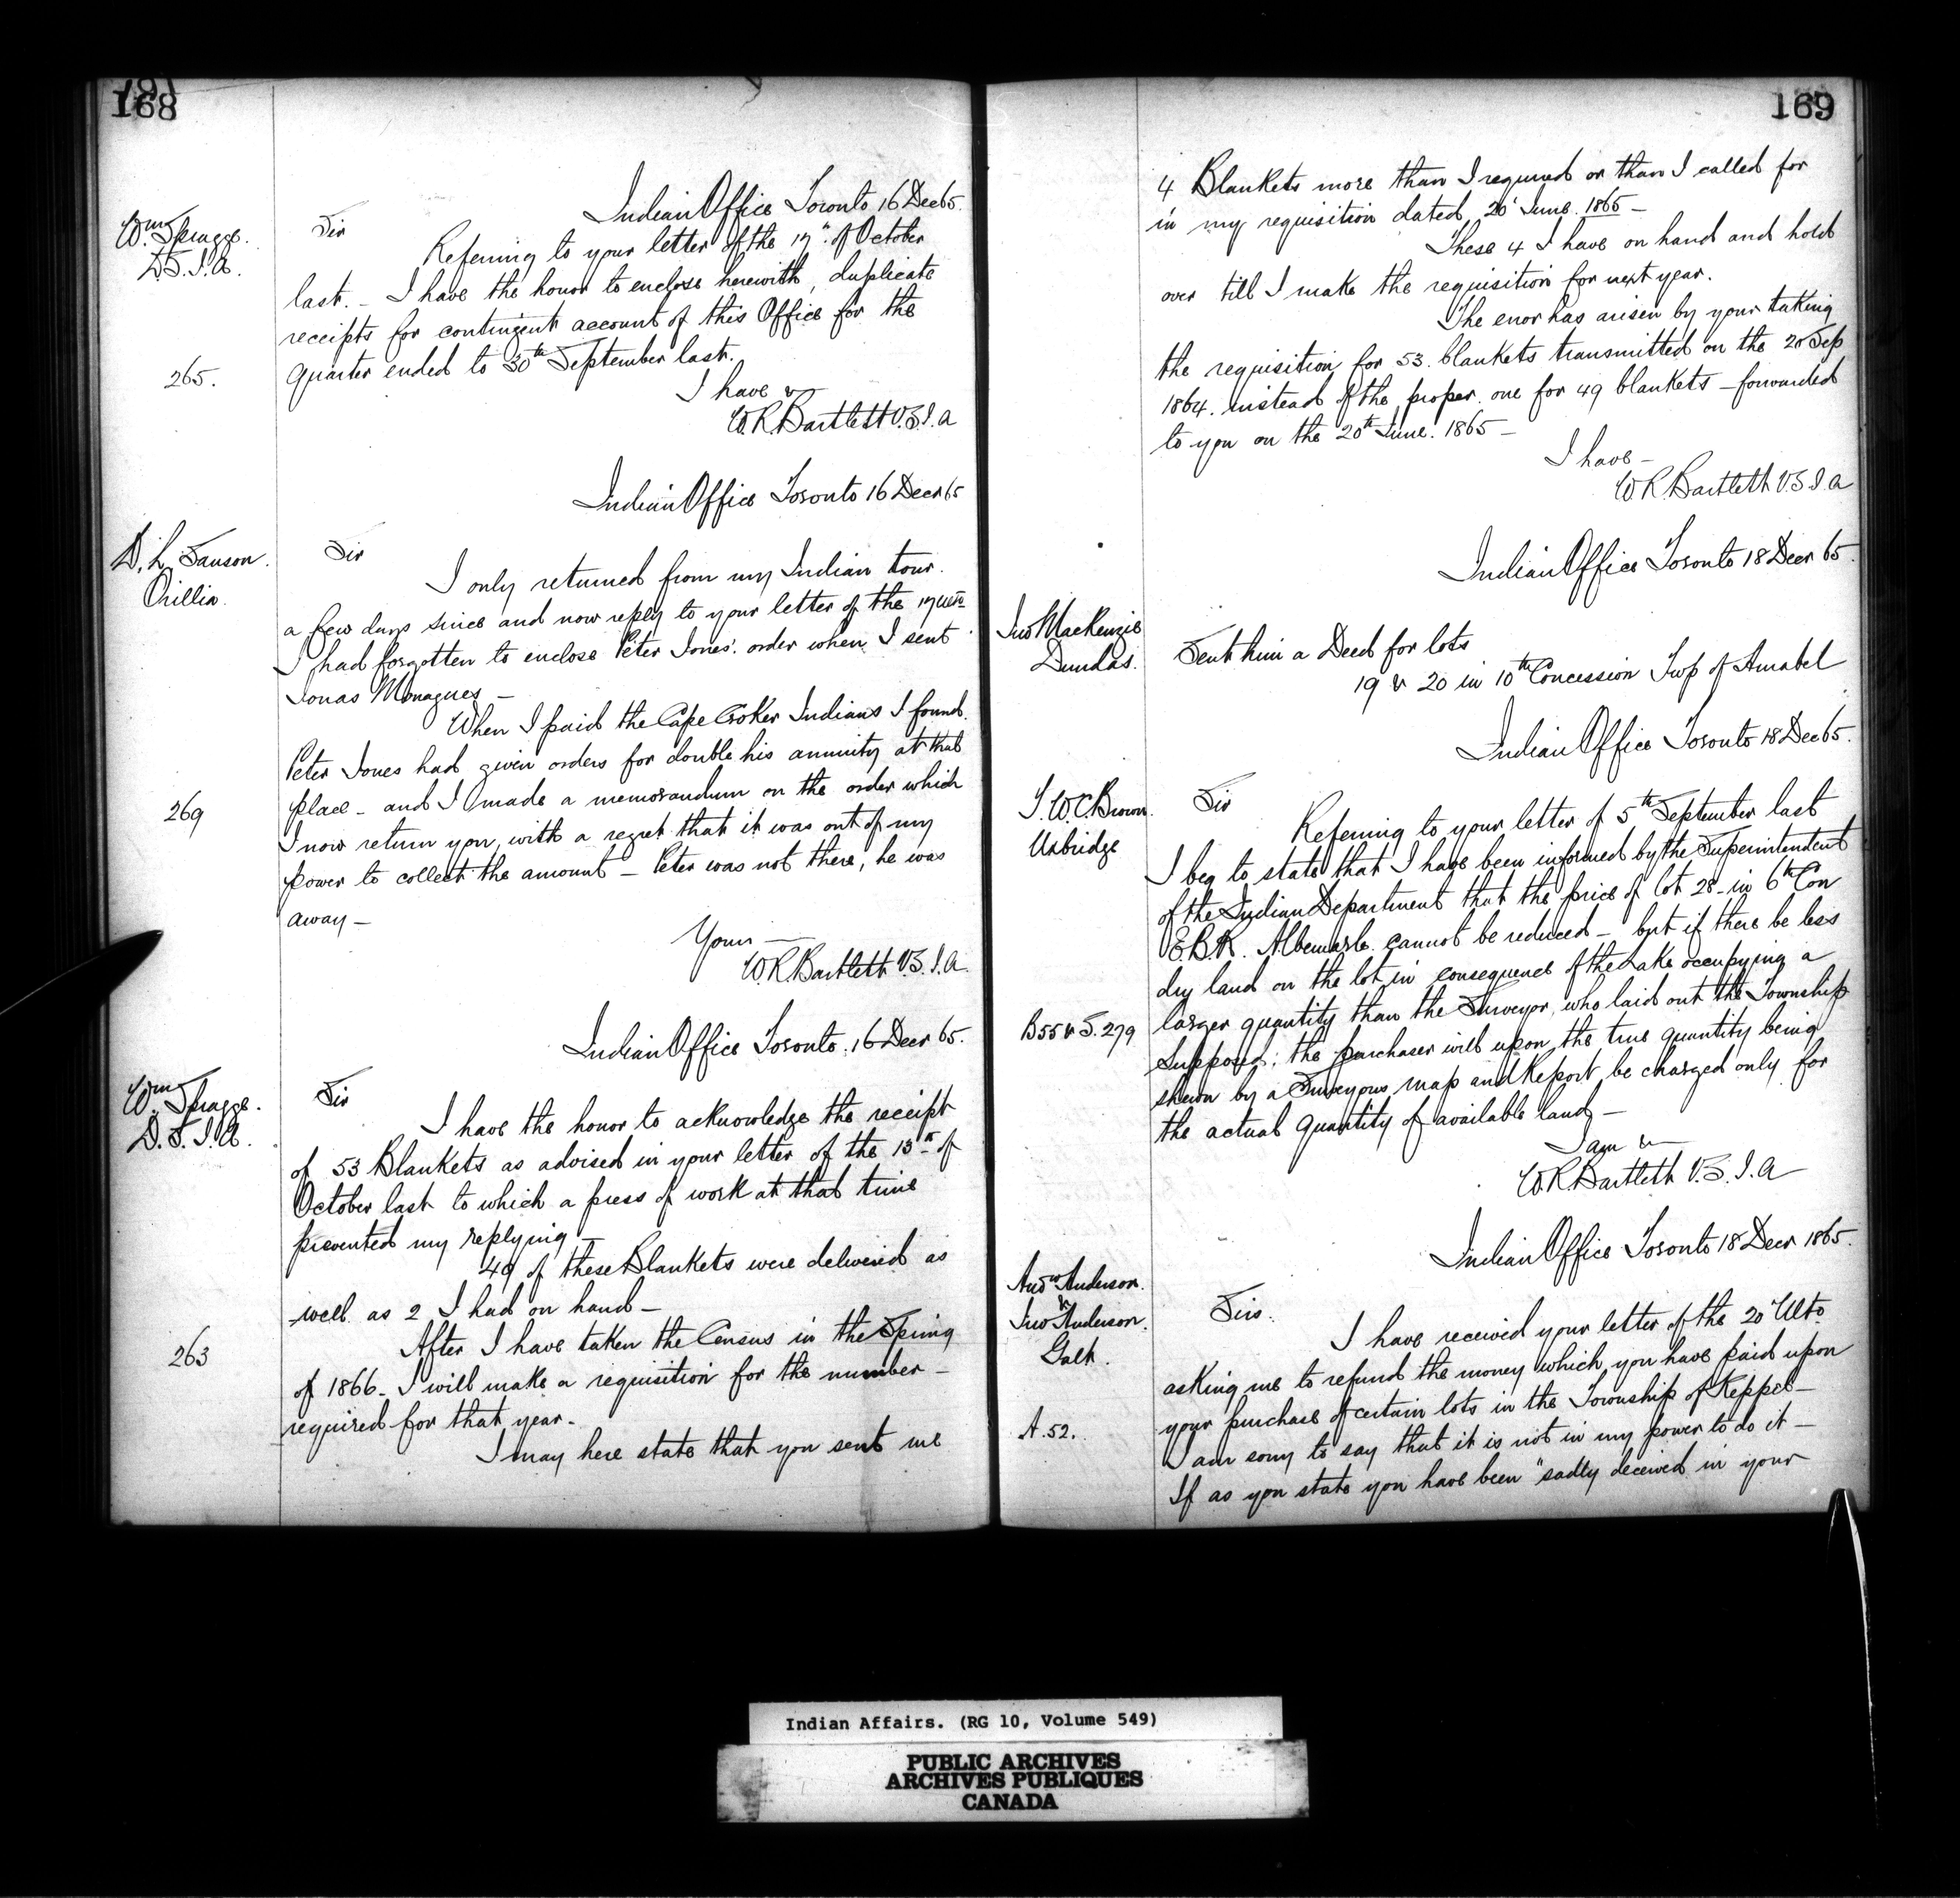 168
Indian Office Toronto 16 Dec 65.
Wm Spragge.
D.S.I.A.
Sir
Referring to your letter of the 17th of October
last. - I have the honor to enclose herewith, duplicate
receipts for contingent account of this Office for the
265.
quarter ended to 30th September last.
I have &
W.R. Bartlett V.S.I.A
Indian Office Toronto 16 Decr 65
D. L. Sanson.
Orillia.
Sir
I only returned from my Indian tour.
a few days since and now reply to your letter of the 17 Ulto
I had forgotten to enclose Peter Jones'. order when I sent
Jonas Monagues -
When I paid the Cape Croker Indians I found.
Peter Jones had given orders for double his annuity at that
269
place - and I made a memorandum on the order which
I now return you, with a regret that it was out of my
power to collect the amount - Peter was not there, he was
away -
Yours
W.R. Bartlett V.S.I.A.
Indian Office Toronto. 16 Decr 65.
Wm Spragge.
D. S. I. A.
Sir
I have the honor to acknowledge the receipt
of 53 Blankets as advised in your letter of the 13th of
October last to which a press of work at that time
prevented my replying -
49 of these Blankets were delivered as
well as 2 I had on hand -
263
After I have taken the Census in the Spring
of 1866 - I will make a requisition for the number -
required for that year.
I may here state that you sent me
169
4 Blankets more than I required or than I called for
in my requisition dated 20' June. 1865 -
These 4 I have on hand and hold
over till I make the requisition for next year.
The error has arisen by your taking
the requisition for 53. blankets transmitted on the 20 Sep
1864. instead of the proper. one for 49 blankets - forwarded
to you on the 20th June. 1865 -
I have -
W R. Bartlett V.S.I.A
Indian Office Toronto 18 Decr 65.
Jno MacKenzie
Dundas.
Sent him a Deed for lots
19 & 20 in 10th Concession Twp of Amabel
Indian Office Toronto 18 Dec 65.
J. W. C. Brown.
Uxbridge
Sir
Referring to your letter of 5th September last
I beg to state that I have been informed by the Superintendent
of the Indian Department that the price of lot 28 - in 6th Con
E.B.R. Albemarle. cannot be reduced - but if there be less
dry land on the lot in consequence of the Lake occupying a
B55 & S. 279
larger quantity than the Surveyor, who laid out the Township
supposed: the purchaser will upon the true quantity being
shewn by a Surveyors map and Report be charged only for
the actual quantity of available land -
I am &
W.R. Bartlett V.S.I.A
Indian Office Toronto 18 Decr 1865.
Andw Anderson.
&
Jno Anderson.
Galt.
Sirs.
I have received your letter of the 20' Ulto
asking me to refund the money which you have paid upon
A. 52.
your purchase of certain lots in the Township of Keppel -
I am sorry to say that it is not in my power to do it -
If as you state you have been "sadly deceived in your
Indian Affairs. (RG 10, Volume 549)
PUBLIC ARCHIVES
ARCHIVES PUBLIQUES
CANADA